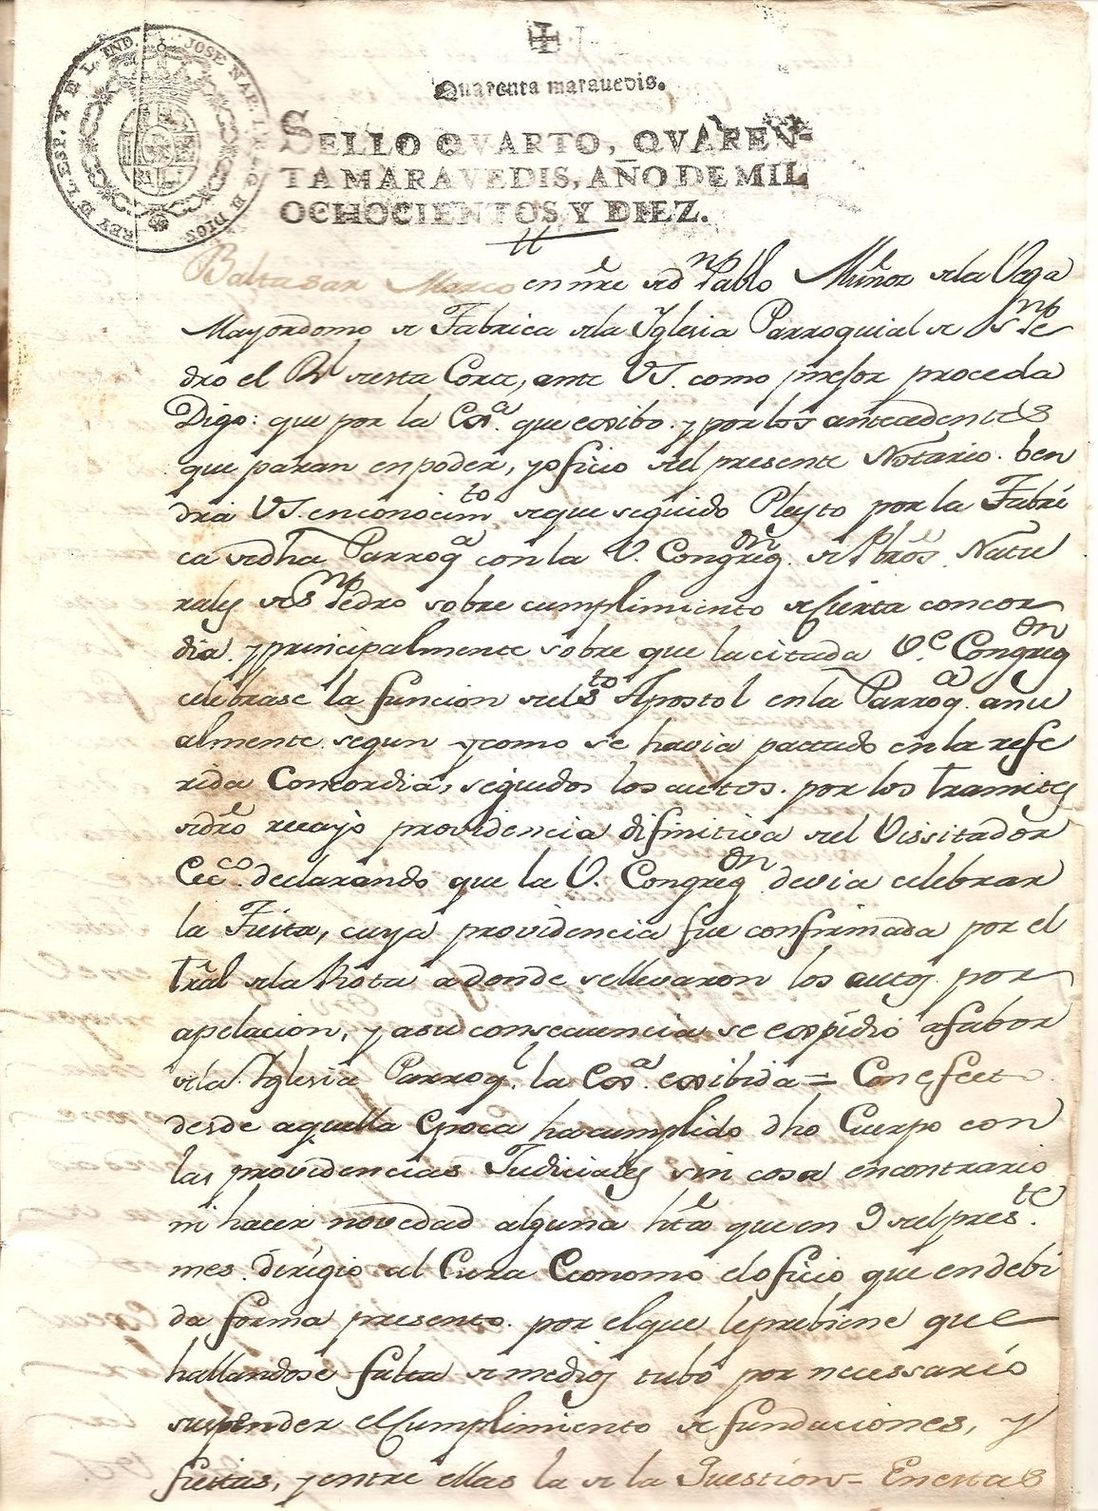 JOSE NAP. I. P. L. G. D DIOS REY D L. ESP. Y D L. IND.
Quarenta maravedis.
SELLO QVARTO, QVAREN-
TA MARAVEDIS, AÑO DE MIL
OCHOCIENTOS Y DIEZ.
Baltasar Marco en nre de dn Pablo Muñoz de la Vega
Mayordomo de Fabrica de la Yglesia Parroquial de Sn Pe
dro el Rl de esta Corte, ante VS. como mejor proceda
Digo: que por la Exa. que exibo y por los antecedentes
que paran en poder, y oficio del presente Notario ben
drá VS. en conocimto de que seguido Pleyto por la Fabri
ca de dha Parroqa con la V. Congregon de Pbros Natu
rales de Sn Pedro sobre cumplimiento de cierta concor
dia y principalmente sobre que la citada Ve. Congregon
celebrase la funcion del Sto Apostol en la Parroqa anu
almente segun y como se havia pactado en la refe
rida Concordia, seguidos los autos por los tramites
de dro recayo providencia difinitiva del Vissitador
Ecco. declarando que la V. Congregon devia celebrar
la Fiesta, cuya providencia fue confirmada por el
Tral de la Rota adonde se llevaron los autos por
apelacion, y a su consecuencia se expidió a fabor
de la Yglesia Parroql. la Exa. exibida = Con efecto
desde aquella epoca ha cumplido dho Cuerpo con
las providencias Judiciales sin cosa en contrario
ni hacer novedad alguna hta que en 9 del preste.
mes dirigio al Cura Economo el oficio que en debi
da forma presento por el que le prebiene que
hallandose falta de medios tubo por necessario
suspender el cumplimiento de fundaciones, y
fiestas, y entre ellas la de la Question = En estas